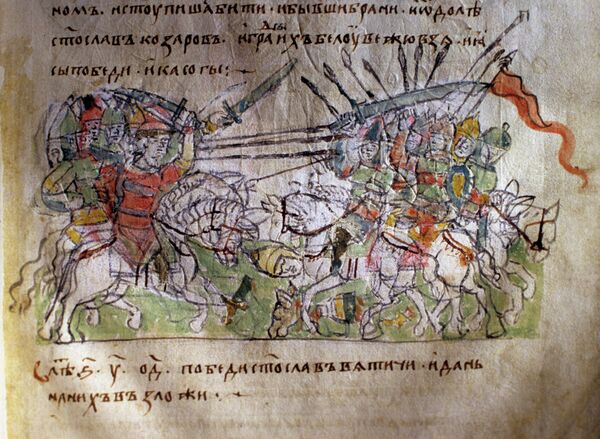 номъ. и стоупишасѧ бити. и бывши брани. и ѡдолѣ
ст҃ославъ козаровъ. и градъ ихъ белоу вежю взѧ. и ꙗ
сы победи. и касогы:
в лѣт҃. ѕ҃. у҃. о҃д. победи ст҃ославъ вѧтичи. и дань
на нихъ възложи.